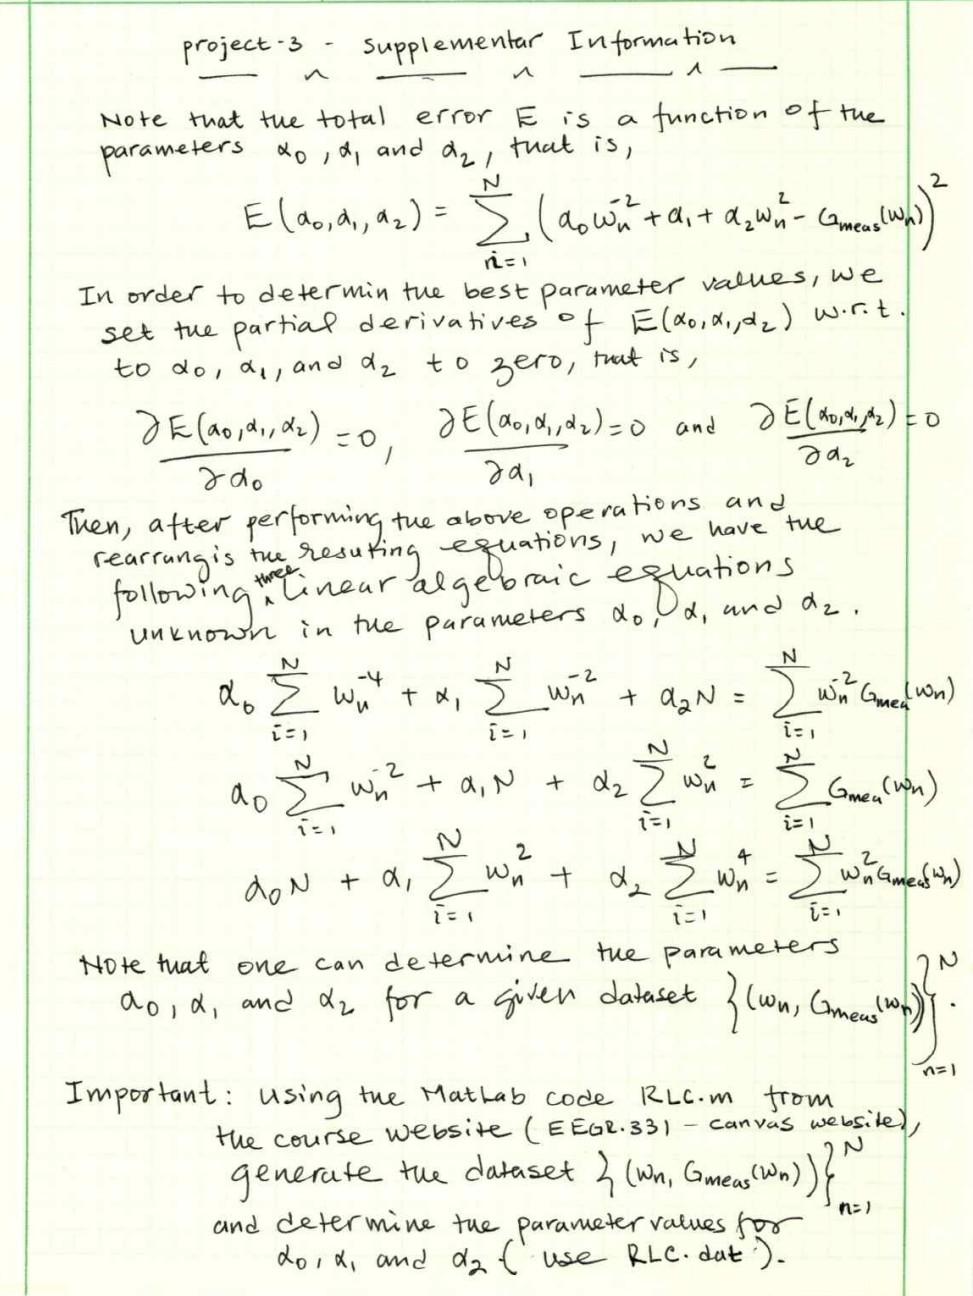 project-3 - Supplementar Information
Note that the total error E is a function of the
parameters α₀, α₁ and α₂, that is,
E(α₀,α₁,α₂) = ∑_{n=1}^{N} (α₀ωₙ⁻² + α₁ + α₂ωₙ² - G_meas(ωₙ))²
In order to determin the best parameter values, we
set the partial derivatives of E(α₀,α₁,α₂) w.r.t.
to α₀, α₁, and α₂ to zero, that is,
∂E(α₀,α₁,α₂)/∂α₀ = 0, ∂E(α₀,α₁,α₂)/∂α₁ = 0 and ∂E(α₀,α₁,α₂)/∂α₂ = 0
Then, after performing the above operations and
rearrangis the resuting equations, we have the
following three linear algebraic equations
unknown in the parameters α₀, α₁ and α₂.
α₀ ∑_{i=1}^{N} ωₙ⁻⁴ + α₁ ∑_{i=1}^{N} ωₙ⁻² + α₂N = ∑_{i=1}^{N} ωₙ⁻² G_mea(ωₙ)
α₀ ∑_{i=1}^{N} ωₙ⁻² + α₁N + α₂ ∑_{i=1}^{N} ωₙ² = ∑_{i=1}^{N} G_mea(ωₙ)
α₀N + α₁ ∑_{i=1}^{N} ωₙ² + α₂ ∑_{i=1}^{N} ωₙ⁴ = ∑_{i=1}^{N} ωₙ² G_meas(ωₙ)
Note that one can determine the parameters
α₀, α₁ and α₂ for a given dataset {(ωₙ, G_meas(ωₙ))}_{n=1}^{N}.
Important: Using the MatLab code RLC.m from
the course website (EEGR.331 - canvas website),
generate the dataset {(ωₙ, G_meas(ωₙ))}_{n=1}^{N}
and determine the parameter values for
α₀, α₁ and α₂ (use RLC.dat).